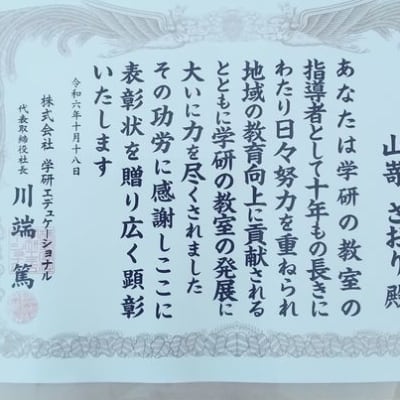 山嵜 さおり 殿
あなたは学研の教室の
指導者として十年もの長きに
わたり日々努力を重ねられ
地域の教育向上に貢献される
とともに学研の教室の発展に
大いに力を尽くされました
その功労に感謝しここに
表彰状を贈り広く顕彰
いたします
令和六年十月十八日
株式会社 学研エデュケーショナル
代表取締役社長 川端 篤